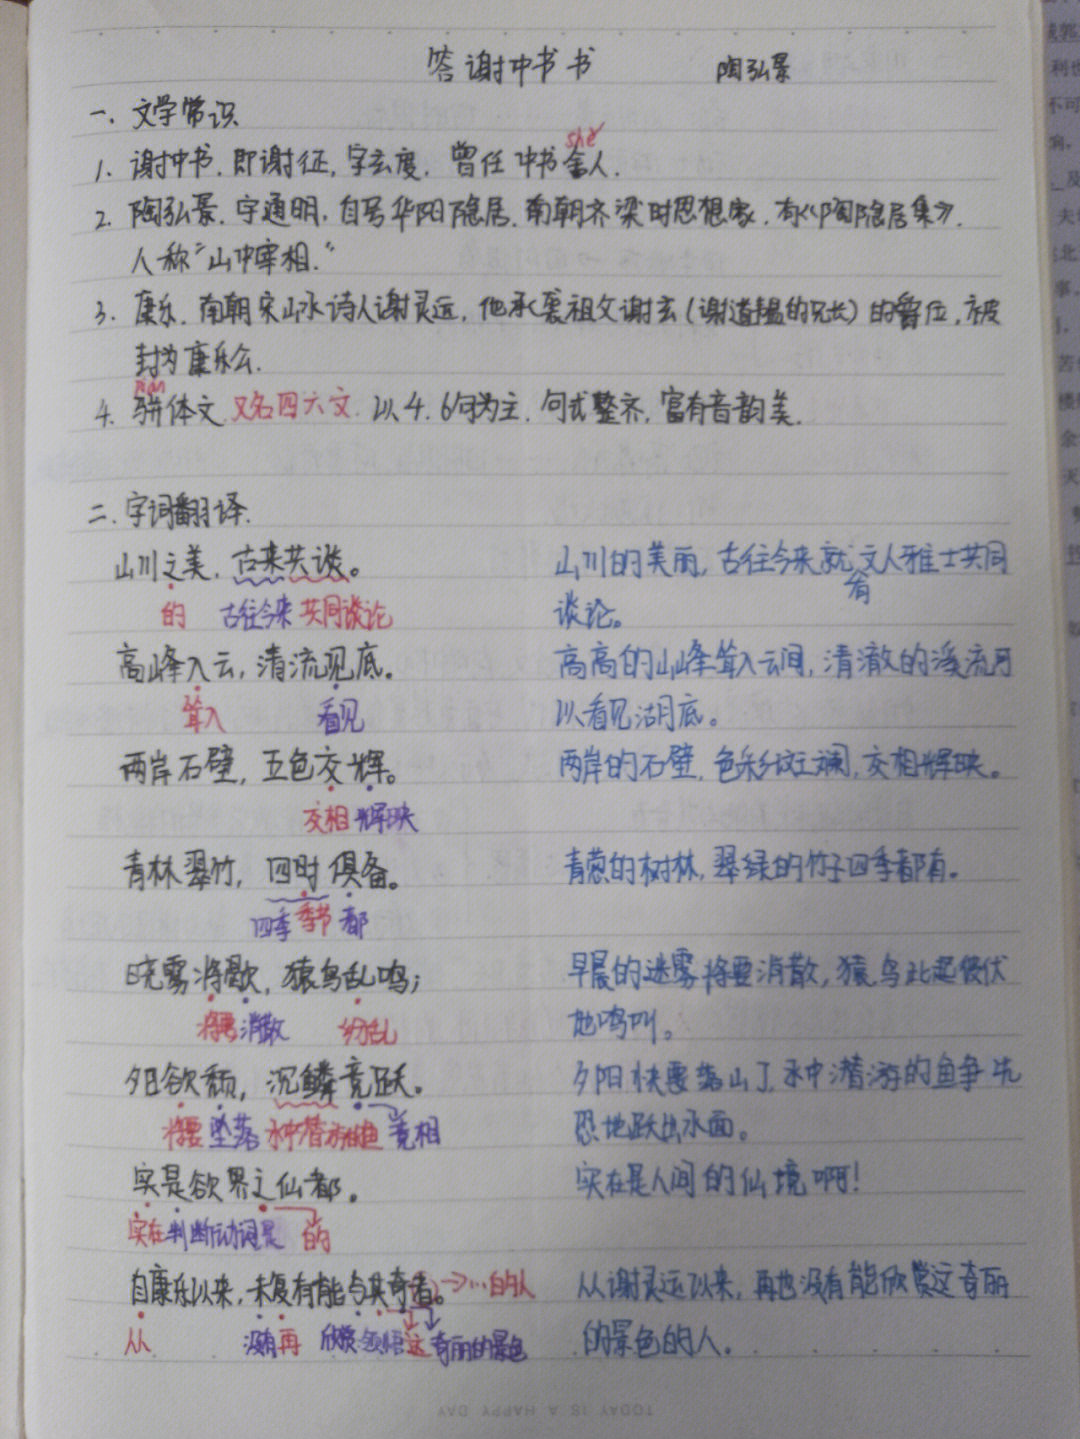 答谢中书书 陶弘景
一、文学常识
shè
1. 谢中书，即谢征，字玄度，曾任中书舍人．
2. 陶弘景，字通明，自号华阳隐居，南朝齐梁时思想家，有《陶隐居集》．
人称“山中宰相．”
3. 康乐，南朝宋山水诗人谢灵运，他承袭祖父谢玄（谢道韫的兄长）的爵位，被
封为康乐公．
pián
4. 骈体文 又名四六文．以4、6句为主，句式整齐，富有音韵美．
二、字词翻译．
山川之美，古来共谈。 山川的美丽，古往今来就有文人雅士共同
的 古往今来 共同谈论 谈论。
高峰入云，清流见底。 高高的山峰耸入云间，清澈的溪流可
耸入 看见 以看见湖底。
两岸石壁，五色交辉。 两岸的石壁，色彩斑斓，交相辉映。
交相 辉映
青林翠竹，四时俱备。 青葱的树林，翠绿的竹子四季都有。
四季 季节 都
晓雾将歇，猿鸟乱鸣； 早晨的迷雾将要消散，猿、鸟此起彼伏
将要 消散 纷乱 地鸣叫。
夕日欲颓，沉鳞竞跃。 夕阳快要落山了，水中潜游的鱼争先
将要 坠落 水中潜游的鱼 竞相 恐地跃出水面。
实是欲界之仙都。 实在是人间的仙境啊！
实在 判断动词是 的
自康乐以来，未复有能与其奇者。→…的人 从谢灵运以来，再也没有能欣赏这奇丽
从 没有 再 欣赏 领悟 这 奇丽的景色 的景色的人。
TODAY IS A HAPPY DAY